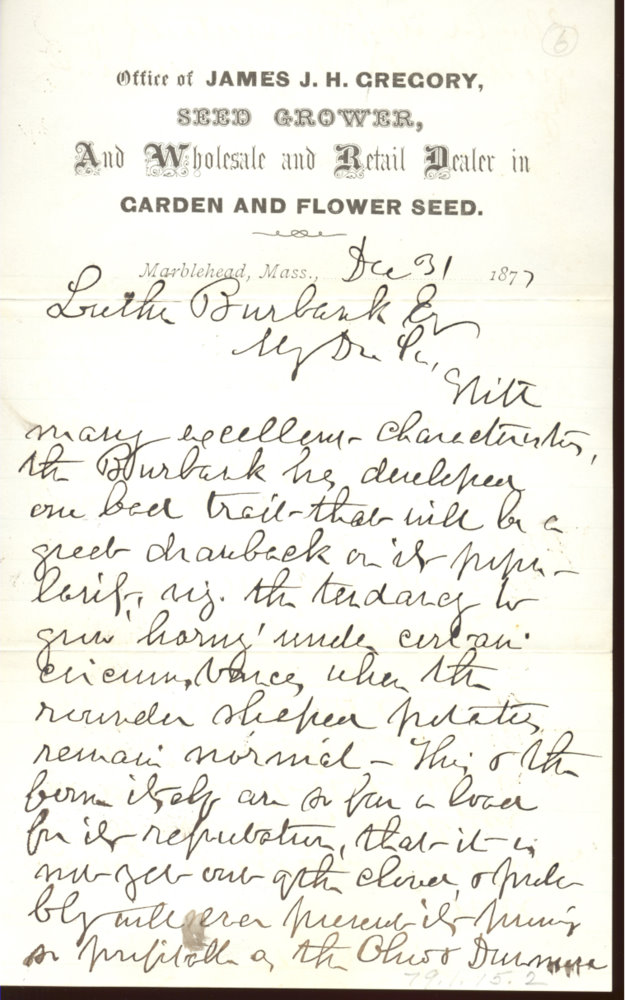 6
Office of JAMES J. H. GREGORY,
SEED GROWER,
And Wholesale and Retail Dealer in
GARDEN AND FLOWER SEED.
Marblehead, Mass., Dec 31 1877
Luther Burbank Esq
My Dr Sir,
With
many excellent characteristics,
the Burbank has developed
one bad trait that will be a
great drawback on its popu-
larity, viz. the tendancy to
grow 'horny' under certain
circumstances, when the
rounder shaped potatoes
remain normal - This & the
form itself are so far a load
for its reputation, that it is
not yet out of the clouds, & proba
bly will ever prevent its proving
so profitable as the Ohio &
79.1.15.2